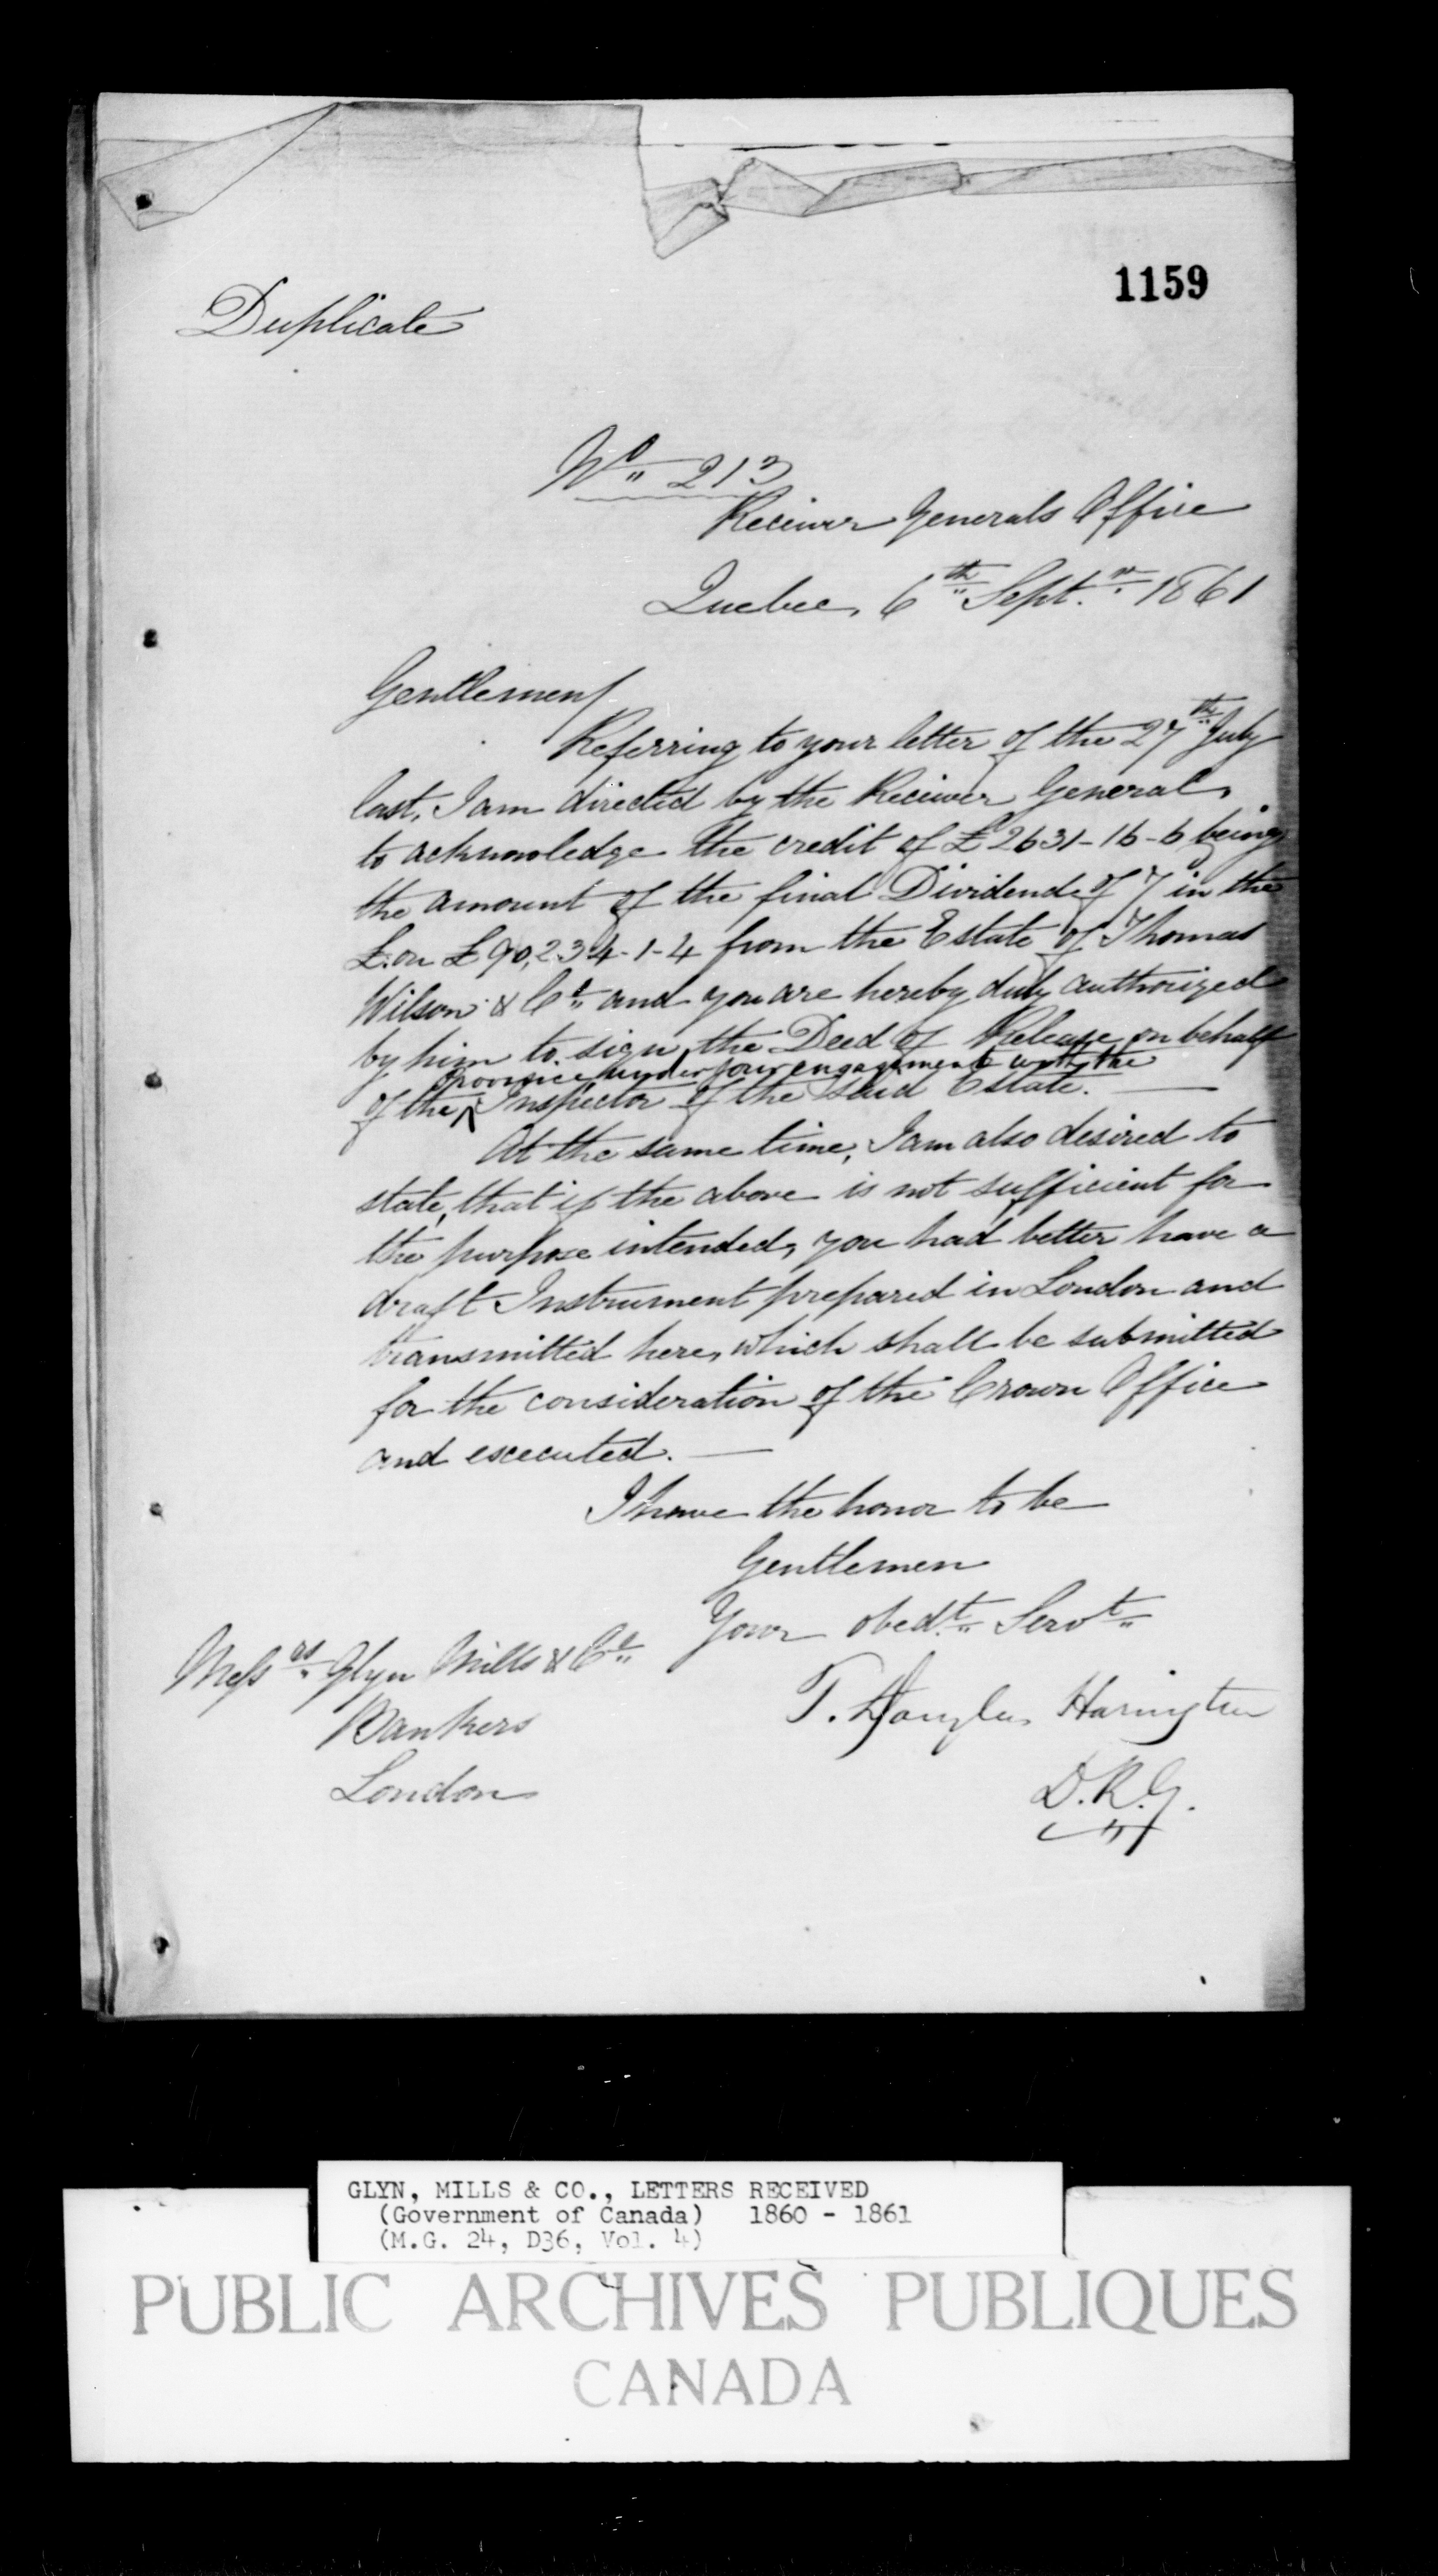 1159
Duplicate
No 213
Receiver Generals Office
Quebec, 6th Sept.r 1861
Gentlemen/
Referring to your letter of the 27th July
last, I am directed by the Receiver General,
to acknowledge the credit of £2631-16-6 being
the amount of the final Dividend of 7 in the
£. on £90,234-1-4 from the Estate of Thomas
Wilson & Co and you are hereby duly authorized
by him to sign the Deed of Release on behalf
Province under your engagement with the
of the Inspector of the said Estate.
At the same time, I am also desired to
state, that if the above is not sufficient for
the purpose intended, you had better have a
draft Instrument prepared in London and
transmitted here, which shall be submitted
for the consideration of the Crown Office
and executed.
I have the honor to be
Gentlemen
Your obedt Servt
Messrs Glyn Mills & Co
Bankers
London
T. Douglas Harington
D.R.G.
GLYN, MILLS & CO., LETTERS RECEIVED
(Government of Canada) 1860 - 1861
(M.G. 24, D36, Vol. 4)
PUBLIC ARCHIVES PUBLIQUES
CANADA